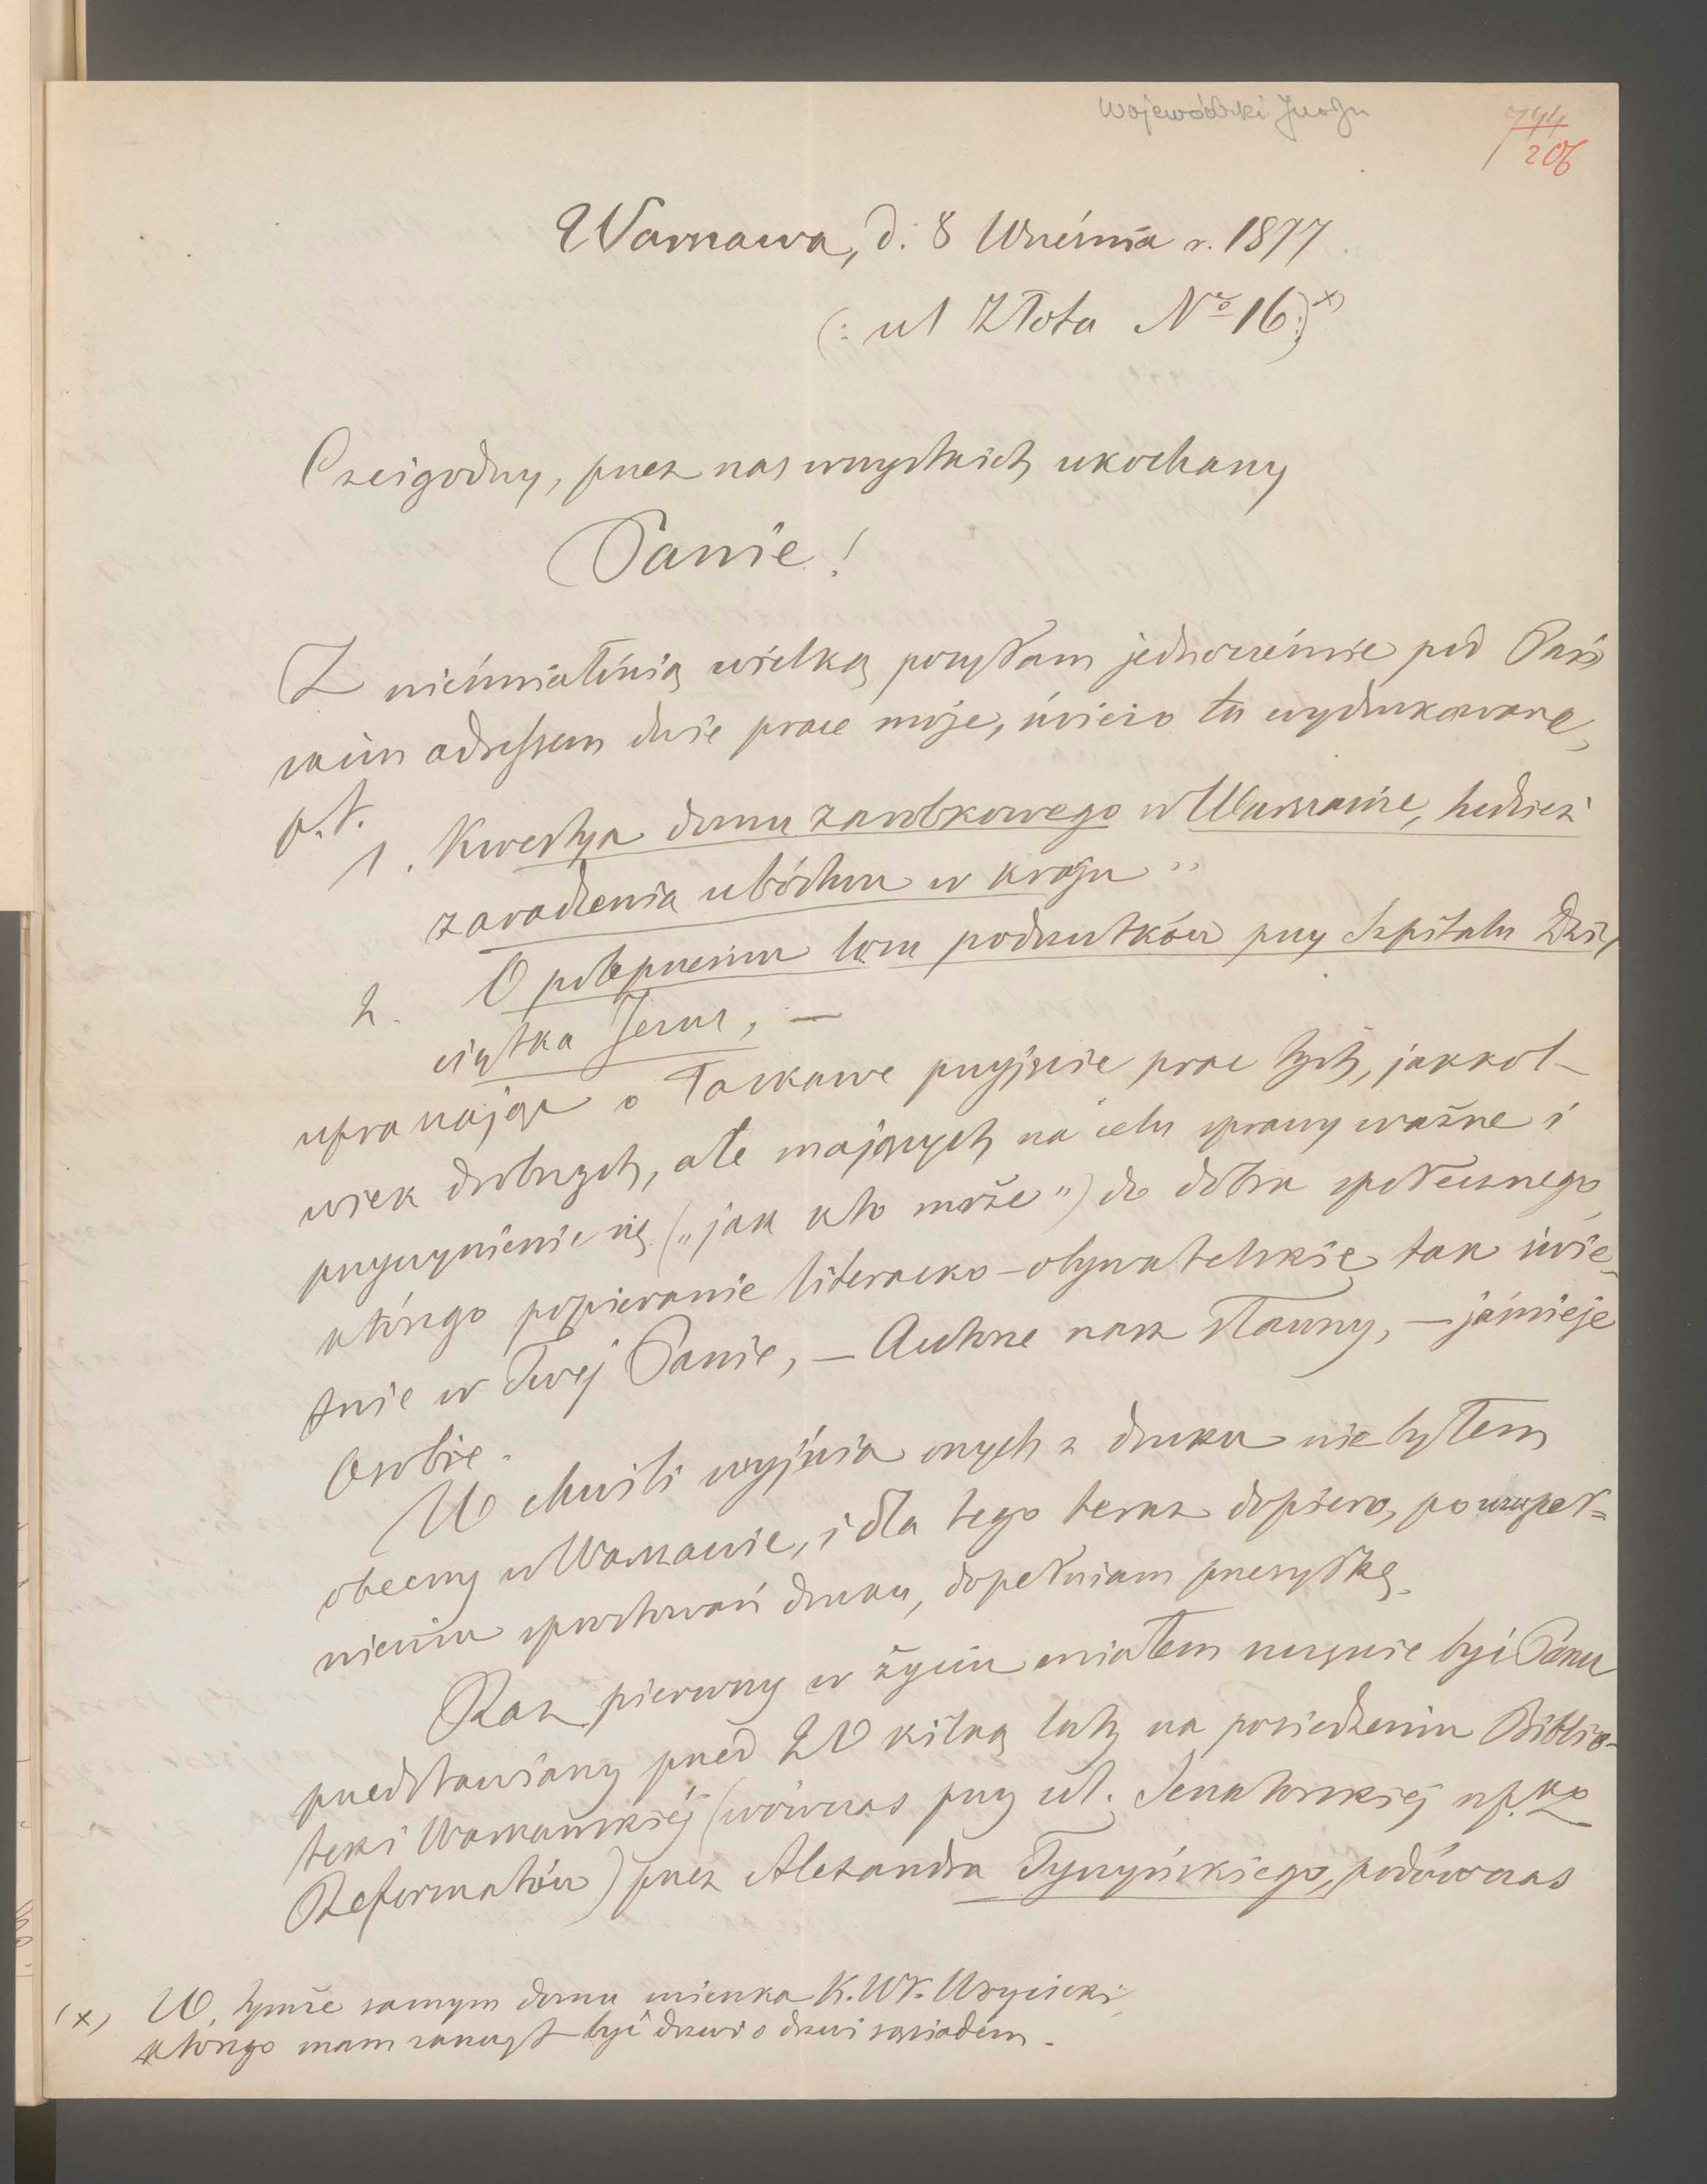 Wojewódzki
744
206
Warszawa, d. 8 Września r. 1877
(: ul Złota No 16 :) x)
Czcigodny, przez nas wszystkich ukochany
Panie!
Z nieśmiałością wielką posyłam jednocześnie pod Pań
skim adressem dwie prace moje, świeżo tu wydrukowane,
p.t.
1. Kwestya domu zarobkowego w Warszawie, tudzież
zaradzenia ubóstwu w kraju"
2. O polepszeniu losu podrzutków przy Szpitalu Dzie
ciątka Jezus, —
upraszając o łaskawe przyjęcie prac tych, jakkol-
wiek drobnych, ale mających na celu sprawy ważne i
przyczynienie się („jak kto może") do dobra społecznego,
którego popieranie literacko-obywatelskie tak świe-
tnie w Twej Panie, — Autorze nasz sławny, — jaśnieje
Osobie.
W chwili wyjścia onych z druku nie byłem
obecny w Warszawie, i dla tego teraz dopiero, po uzupeł=
nieniu sprostowań druku, dopełniam przesyłkę.
Raz pierwszy w życiu miałem szczęście być Panu
przedstawiony przed 20 kilką laty na posiedzeniu Biblio-
teki Warszawskiej (wówczas przy ul. Senatorskiej
Reformatów) przez Alexandra Tyszyńskiego, podówczas
(x) W tymże samym domu mieszka K. Wł. Wóycicki,
którego mam zaszczyt być drzwi o drzwi sąsiadem.